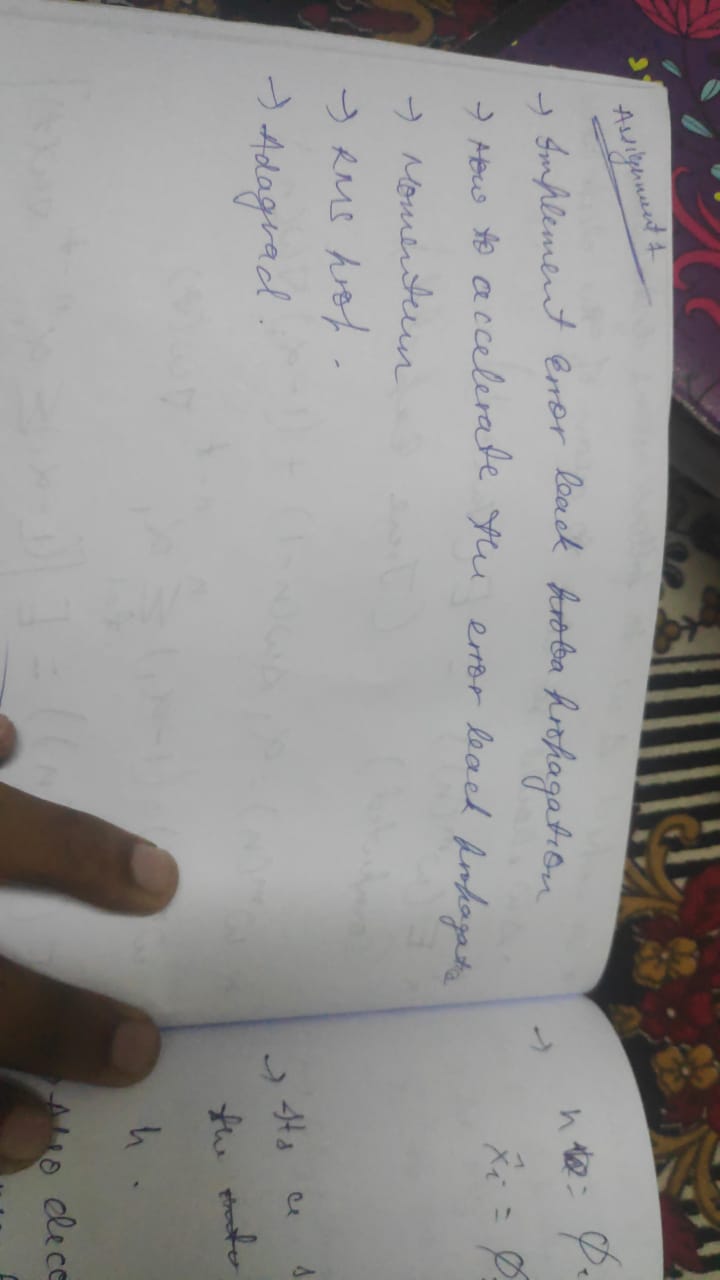 Assignment 1
→ Implement Error back propagation
→ How to accelerate the error back propagatio
→ Momentum
→ RMS prop.
→ Adagrad.
→ h = φ
x̂i = φ
→ Its a
the
h.
Also deco